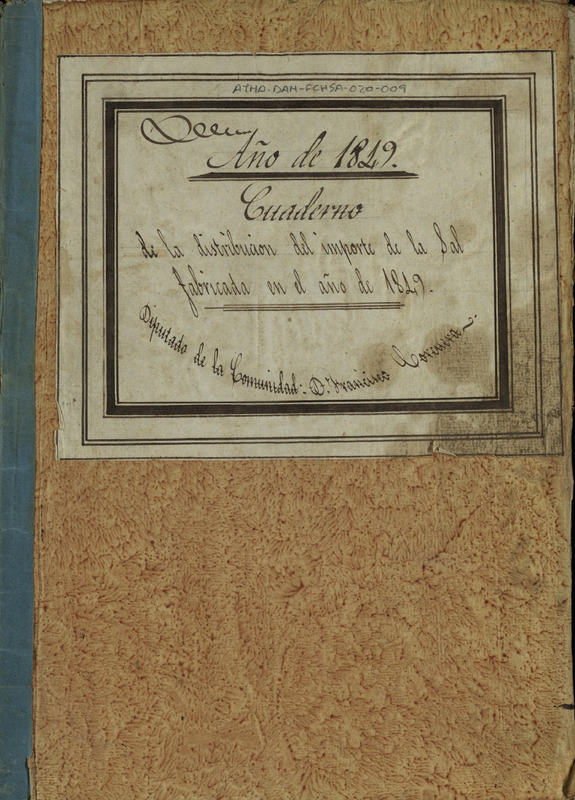 ATHA-DAH-FCHSA-020-009
Año de 1849.
Cuaderno
de la distribucion del importe de la Sal
fabricada en el año de 1849.
Diputado de la Comunidad: D. Francisco